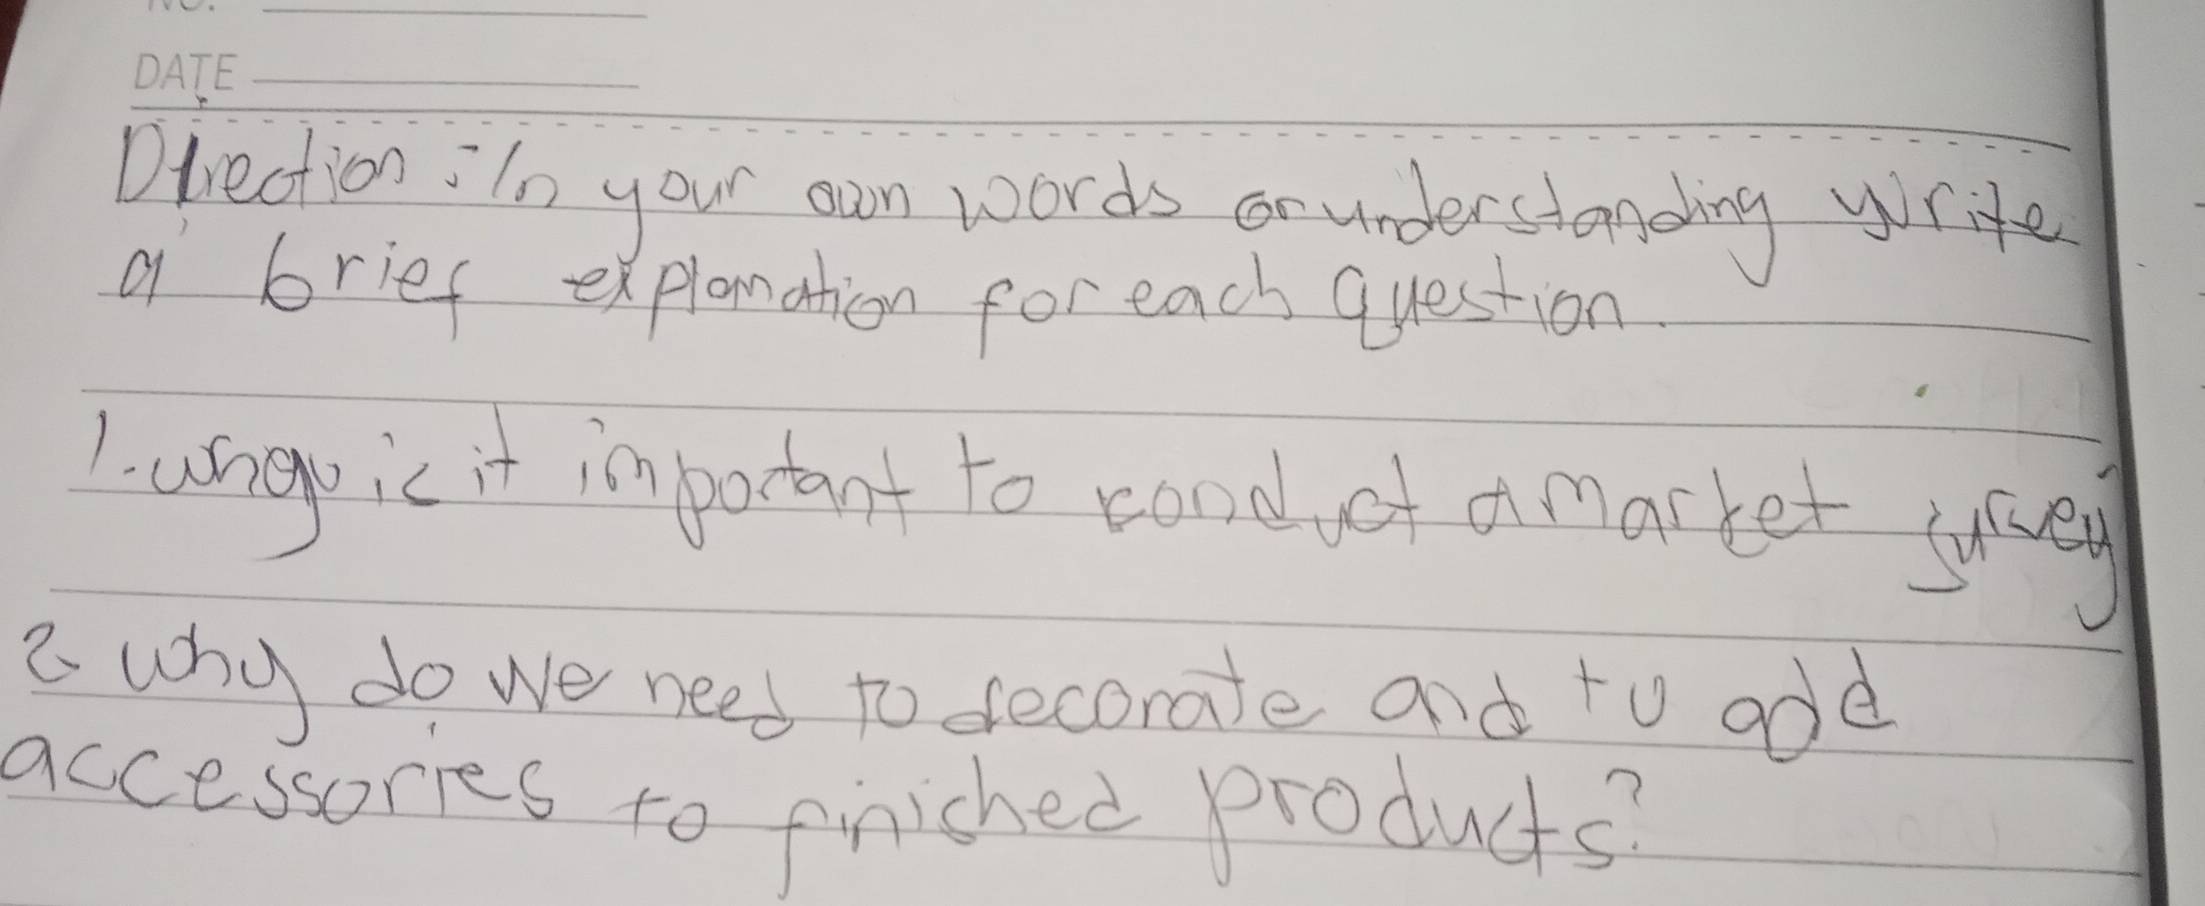 DATE
Direction: In your own words or understanding write
a brief explanation for each question.
1. why is it important to conduct a market survey
2 why do we need to decorate and to add
accessories to finished products?